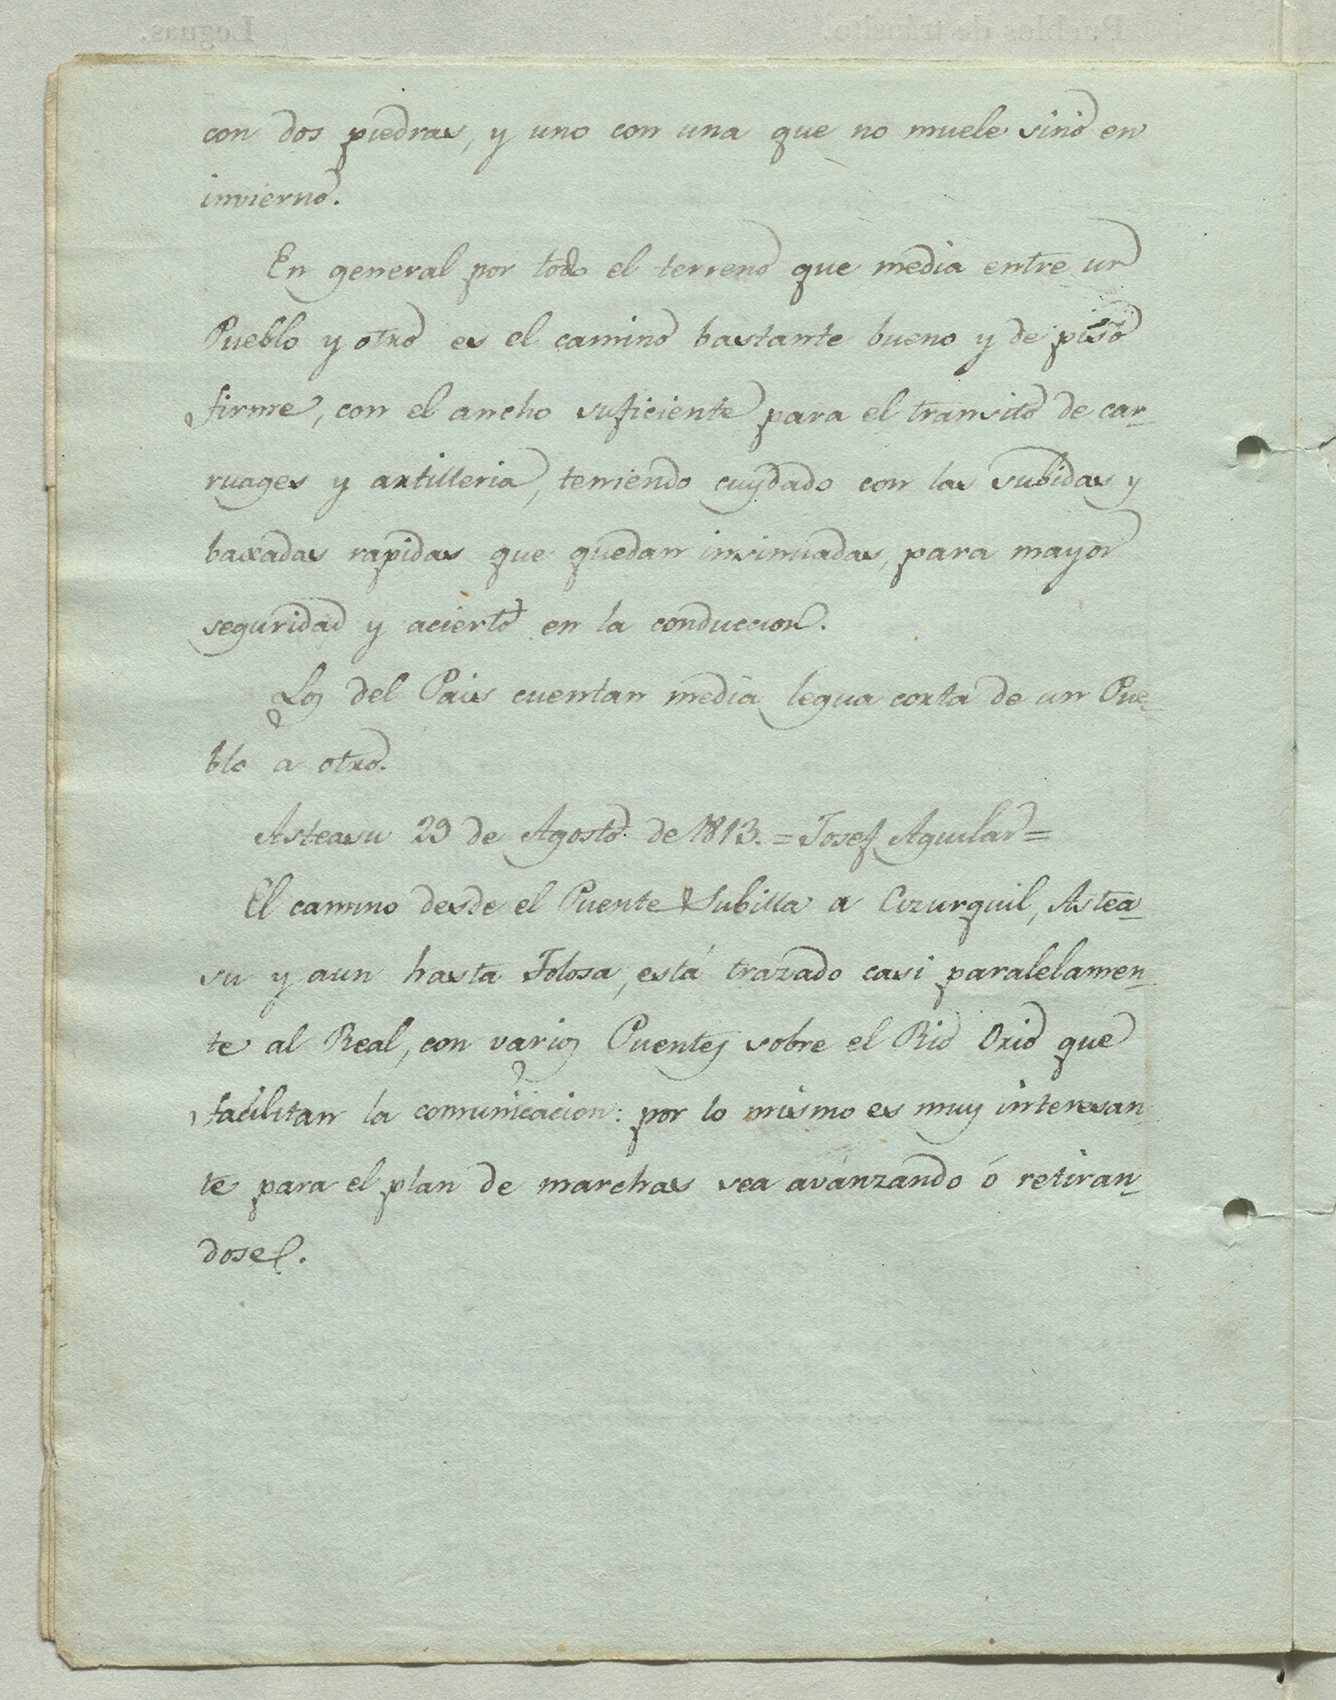 Pueblos de tránsito. Leguas.
con dos piedras, y uno con una que no muele sino en
invierno.
En general por todo el terreno que media entre un
Pueblo y otro es el camino bastante bueno y de piso
firme, con el ancho suficiente para el transito de car-
ruages y artilleria, teniendo cuydado con las subidas y
baxadas rapidas que quedan insinuadas, para mayor
seguridad y acierto en la conduccion.
Los del Pais cuentan media legua corta de un Pue-
blo a otro.
Asteasu 29 de Agosto de 1813. = Josef Aguilar =
El camino desde el Puente Subilla a Cizurquil, Astea-
su y aun hasta Tolosa, está trazado casi paralelamen-
te al Real, con varios Puentes sobre el Rio Orio que
facilitan la comunicacion: por lo mismo es muy interesan-
te para el plan de marchas sea avanzando ó retiran-
dose.